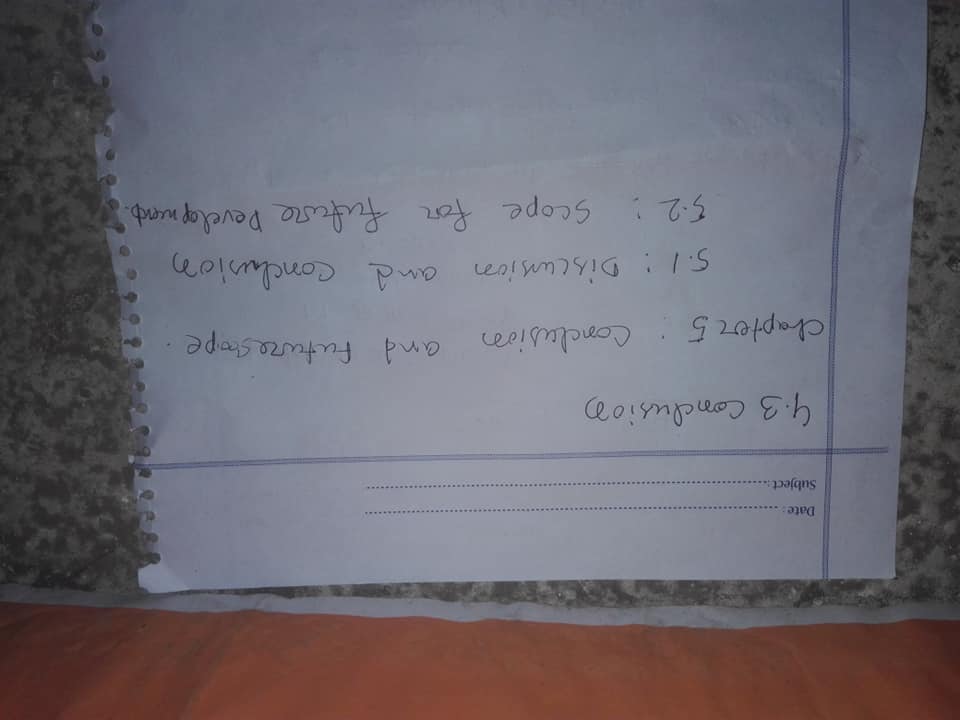 Date:
Subject:
4.3 Conclusion
Chapter 5 : Conclusion and Futurescope.
5.1 : Discussion and Conclusion
5.2 : Scope for Future Development.